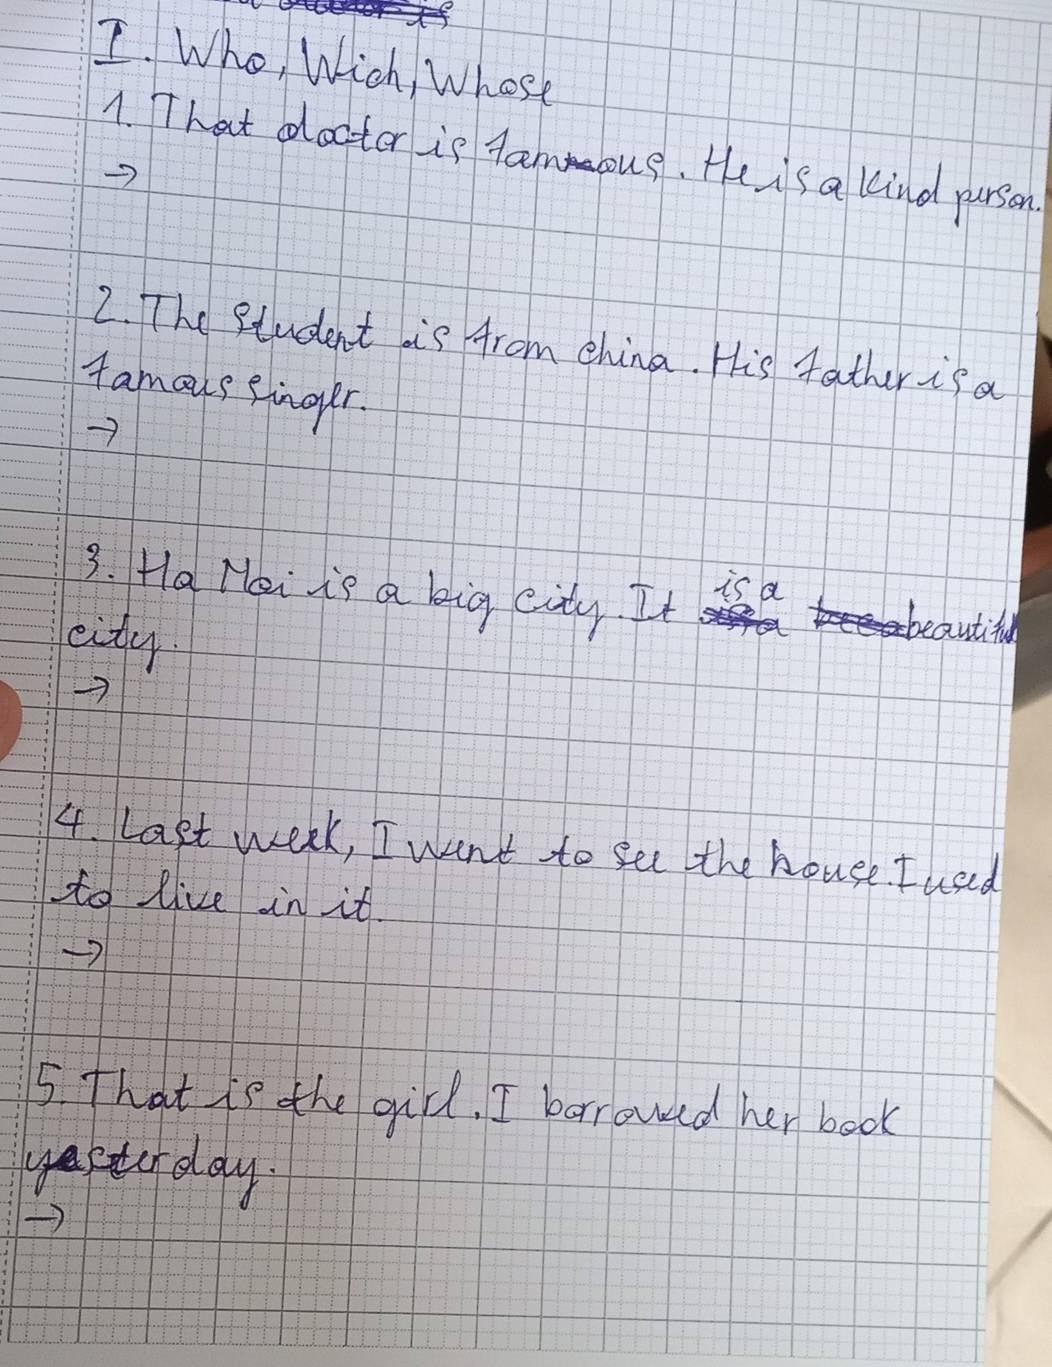 I. Who, Wich, Whose
1. That doctor is famous. He is a kind person.
→
2. The student is from china. His father is a
famous singer.
→
3. Ha Noi is a big city. It is a beautiful
city.
→
4. Last week, I went to see the house. I used
to live in it.
→
5. That is the girl. I borrowed her book
yesterday.
→